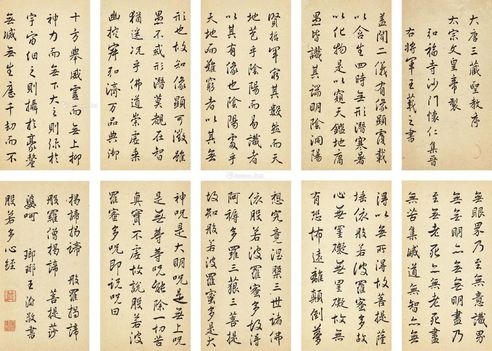 大唐三藏聖教序
太宗文皇帝製
弘福寺沙門懷仁集晉
右將軍王羲之書
蓋聞二儀有像顯覆載
以含生四時無形潛寒暑
以化物是以窺天鑑地庸
愚皆識其端明陰洞陽
賢哲罕窮其數然而天
地苞乎陰陽而易識者
以其有像也陰陽處乎
天地而難窮者以其無
形也故知像顯可徵雖
愚不惑形潛莫覩在智
猶迷況乎佛道崇虛乘
幽控寂弘濟萬品典御
十方舉威靈而無上抑
神力而無下大之則彌於
宇宙細之則攝於毫釐
無滅無生歷千劫而不
無眼界乃至無意識界
無無明亦無無明盡乃
至無老死亦無老死盡
無苦集滅道無智亦無
得以無所得故菩提薩
埵依般若波羅蜜多故
心無罣礙無罣礙故無
有恐怖遠離顛倒夢
想究竟涅槃三世諸佛
依般若波羅蜜多故得
阿耨多羅三藐三菩提
故知般若波羅蜜多是大
神咒是大明咒是無上咒
是無等等咒能除一切苦
真實不虛故說般若波
羅蜜多咒即說咒曰
揭諦揭諦 般羅揭諦
般羅僧揭諦 菩提莎
婆呵 瑯琊王澍敬書
般若多心經